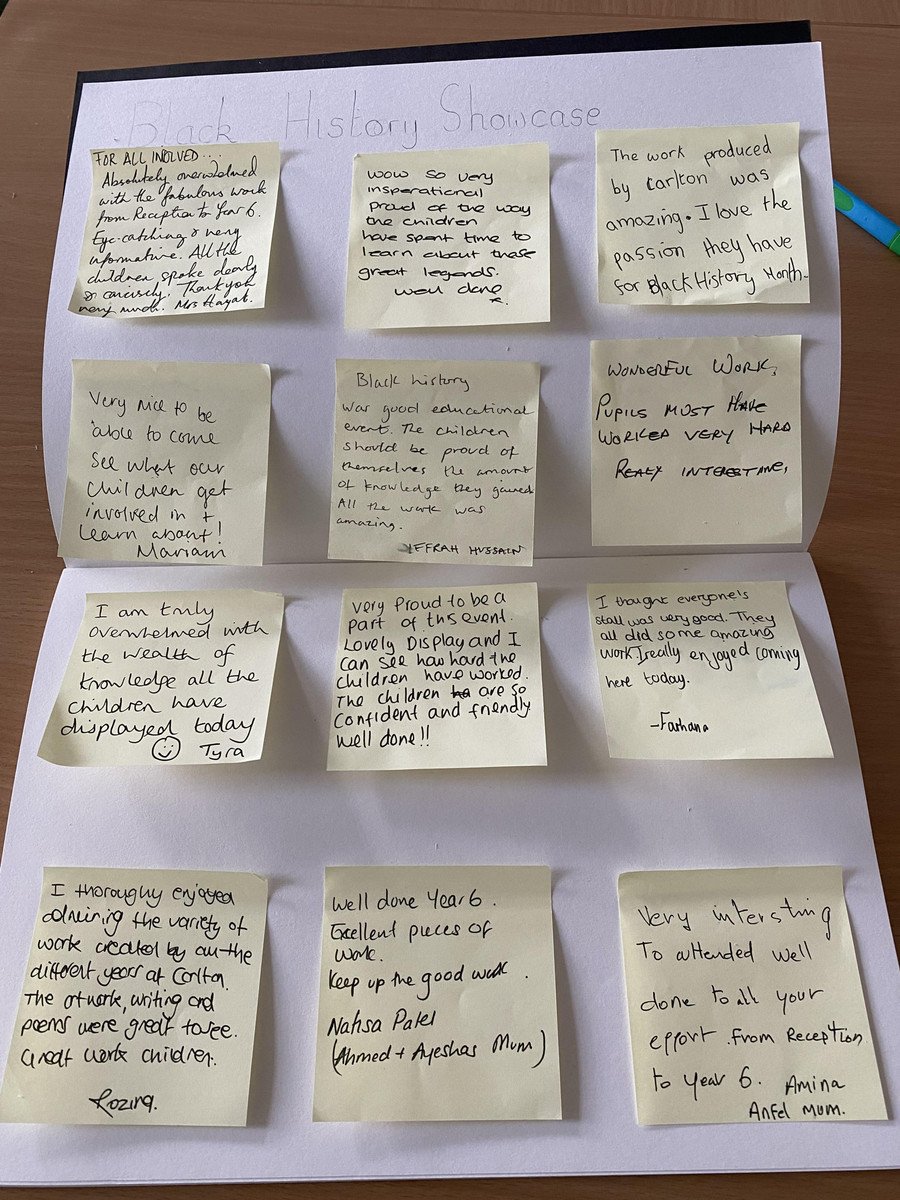 Black History Showcase
FOR ALL INVOLVED...
Absolutely overwhelmed
with the fabulous work
from Reception to Year 6.
Eye-catching & very
informative. All the
children spoke clearly
& concisely. Thank you
very much. Mrs Hayat.
Wow so very
insperational
Proud of the way
the children
have spent time to
learn about these
great legends.
Well done
x.
The work produced
by Carlton was
amazing. I love the
passion they have
for Black History Month.
Very nice to be
able to come
See what our
Children get
involved in +
learn about!
Mariam
Black history
Was good educational
event. The children
should be proud of
themselves the amount
of knowledge they gained
All the work was
amazing.
IFFRAH HUSSAIN
WONDERFUL WORK,
PUPILS MUST HAVE
WORKED VERY HARD
REALY INTERESTING,
I am truly
overwhelmed with
the wealth of
knowledge all the
children have
displayed today
Tyra
Very Proud to be a
part of this event.
Lovely Display and I
can see how hard the
children have worked.
The children ha are so
confident and friendly
Well done!!
I thought everyone's
stall was very good. They
all did some amazing
work I really enjoyed coming
here today.
-Farhana
I thoroughy enjoyed
admiring the variety of
work created by all the
different years at Carlton.
The artwork, writing and
poems were great to see.
Great work children.
Rozina.
Well done Year 6.
Excellent pieces of
work.
Keep up the good work.
Nahsa Patel
(Ahmed + Ayeshas Mum)
Very intersting
To attended well
done to all your
effort. From Reception
to Year 6. Amina
Anfel MUM.